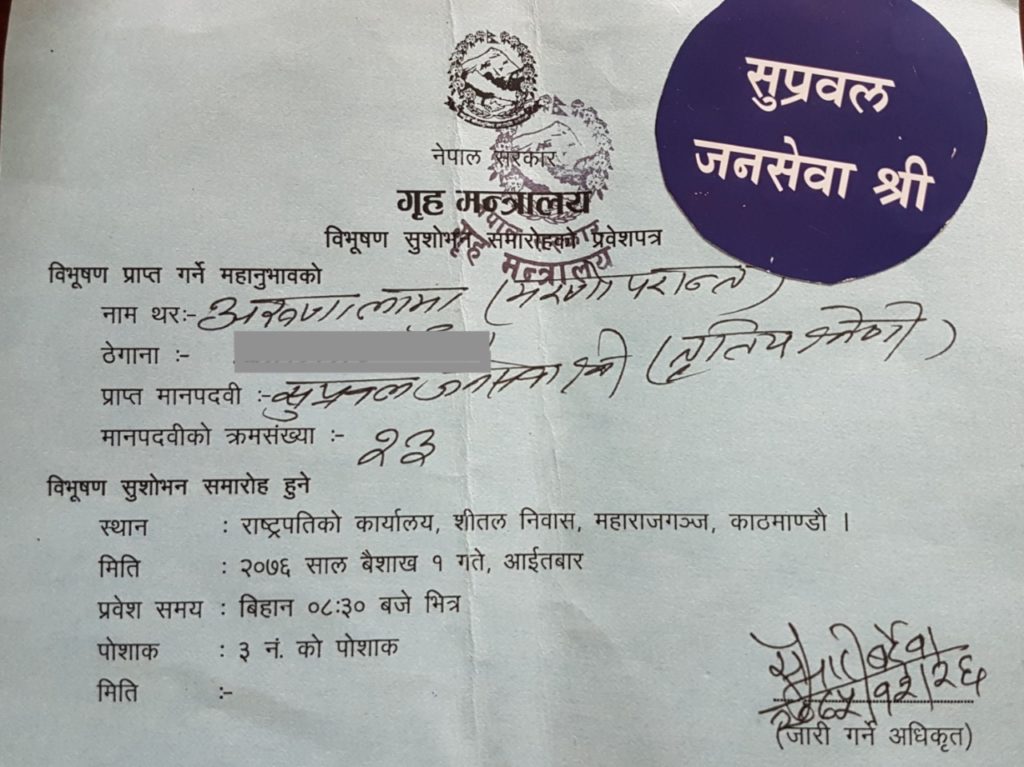 सुप्रवल
जनसेवा श्री
नेपाल सरकार
गृह मन्त्रालय
विभूषण सुशोभन समारोहको प्रवेशपत्र
विभूषण प्राप्त गर्ने महानुभावको
नाम थरः- अरूणा लामा (मरणोपरान्त)
ठेगाना :-
प्राप्त मानपदवी :- सुप्रवल जनसेवा श्री (तृतिय श्रेणी)
मानपदवीको क्रमसंख्या :- २३
विभूषण सुशोभन समारोह हुने
स्थान : राष्ट्रपतिको कार्यालय, शीतल निवास, महाराजगञ्ज, काठमाण्डौ ।
मिति : २०७६ साल बैशाख १ गते, आईतबार
प्रवेश समय : बिहान ०८:३० बजे भित्र
पोशाक : ३ नं. को पोशाक
मिति :-
२०७५/१२/२६
(जारी गर्ने अधिकृत)